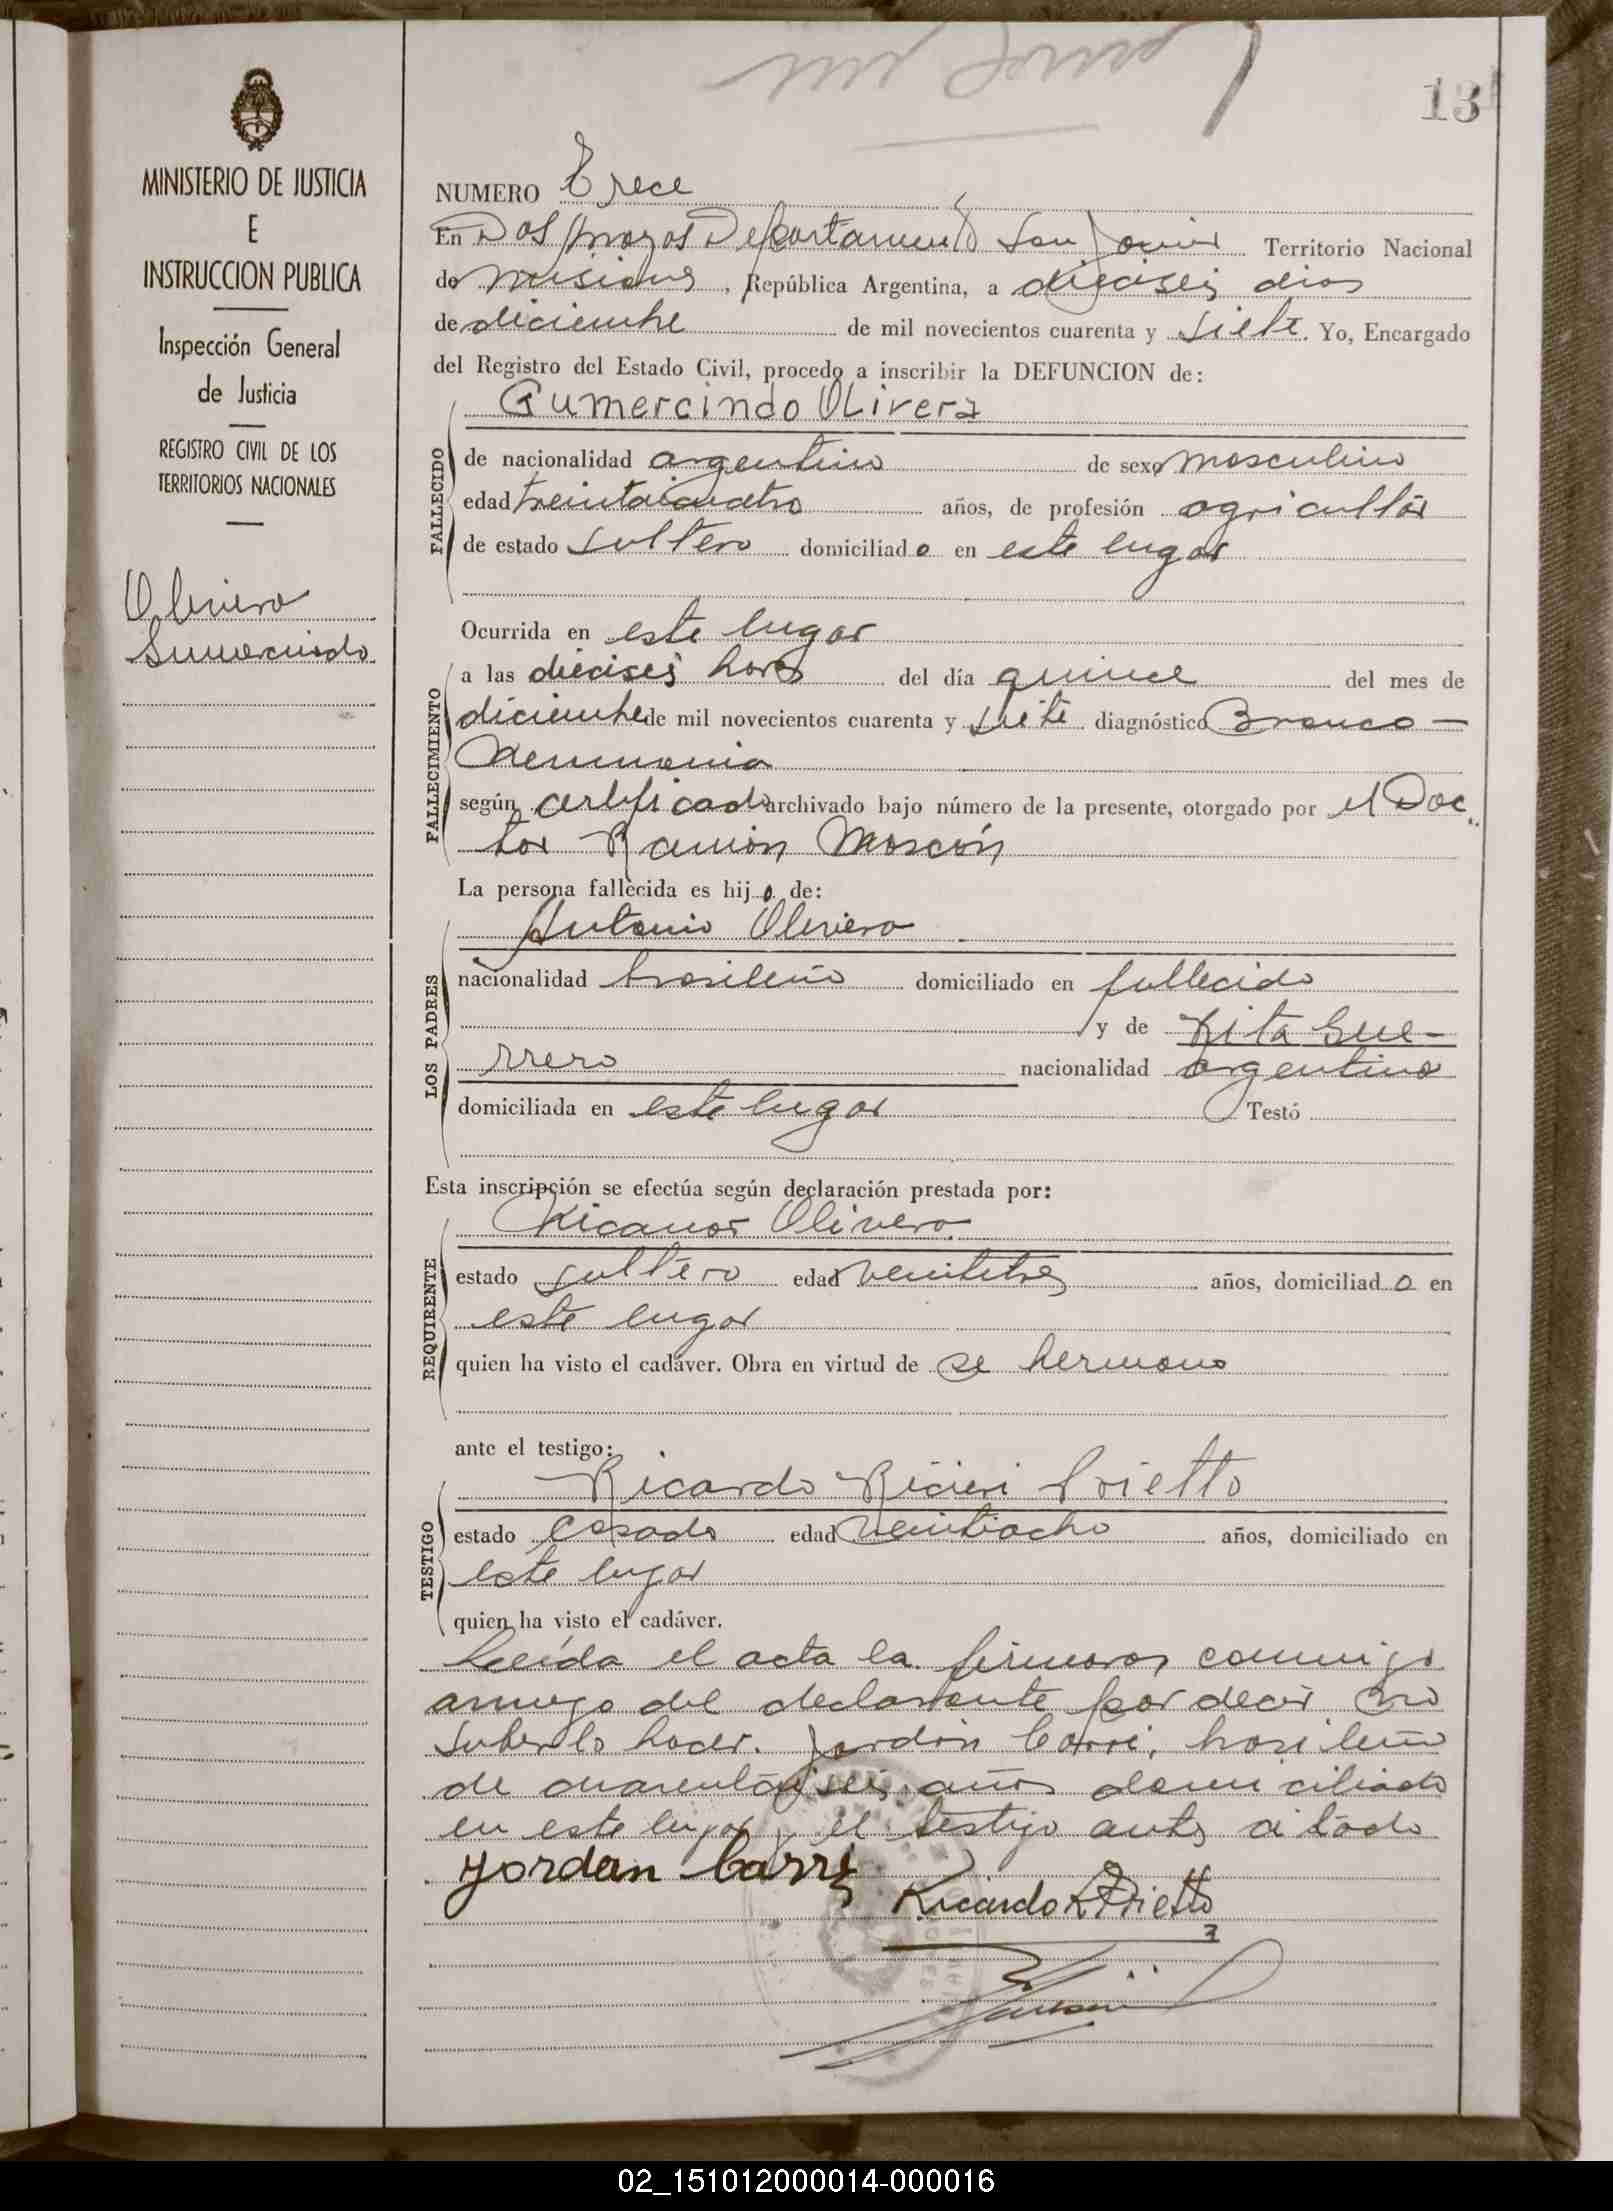 13
MINISTERIO DE JUSTICIA
E
INSTRUCCION PUBLICA
Inspección General
de Justicia
REGISTRO CIVIL DE LOS
TERRITORIOS NACIONALES
Olivera
Gumercindo
NUMERO Trece
En Dos Arroyos Departamento San Javier Territorio Nacional
de Misiones, República Argentina, a dieciseis dias
de diciembre de mil novecientos cuarenta y siete. Yo, Encargado
del Registro del Estado Civil, procedo a inscribir la DEFUNCION de:
Gumercindo Olivera
FALLECIDO
de nacionalidad argentino de sexo masculino
edad treintaicuatro años, de profesión agricultor
de estado soltero domiciliado en este lugar
Ocurrida en este lugar
FALLECIMIENTO
a las dieciseis horas del día quince del mes de
diciembre de mil novecientos cuarenta y siete diagnóstico Bronco-
neumonia
según certificado archivado bajo número de la presente, otorgado por el Doc
tor Ramón
La persona fallecida es hijo de:
LOS PADRES
Antonio Olivera
nacionalidad brasileño domiciliado en fallecido
y de Rita Gue-
rrero nacionalidad argentina
domiciliada en este lugar Testó
Esta inscripción se efectúa según declaración prestada por:
REQUIRENTE
Nicanor Olivera
estado soltero edad veintitres años, domiciliado en
este lugar
quien ha visto el cadáver. Obra en virtud de se hermano
ante el testigo:
TESTIGO
Ricardo Ricieri Prietto
estado casado edad veintiocho años, domiciliado en
este lugar
quien ha visto el cadáver.
Leída el acta la firmaron conmigo
a ruego del declarante por decir no
saberlo hacer. Jordán Carré, brasileño
de cuarentaiseis años domiciliado
en este lugar y el testigo antes citado
Jordan Carré
Ricardo R Prietto
02_151012000014-000016